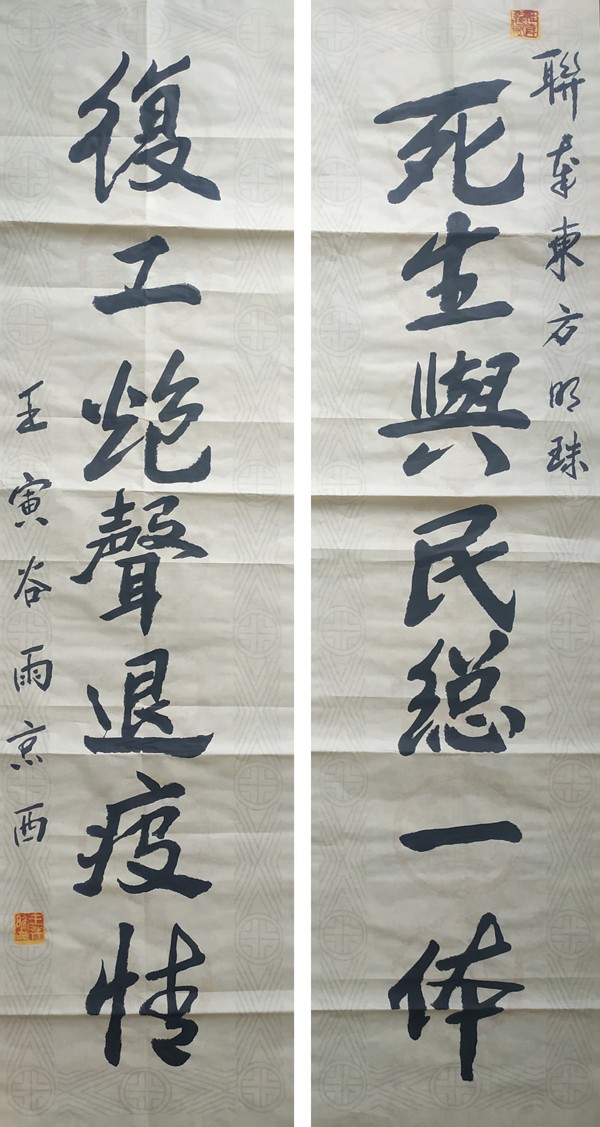 聯奉東方明珠
死生與民總一体
復工炮聲退疫情
壬寅谷雨京西